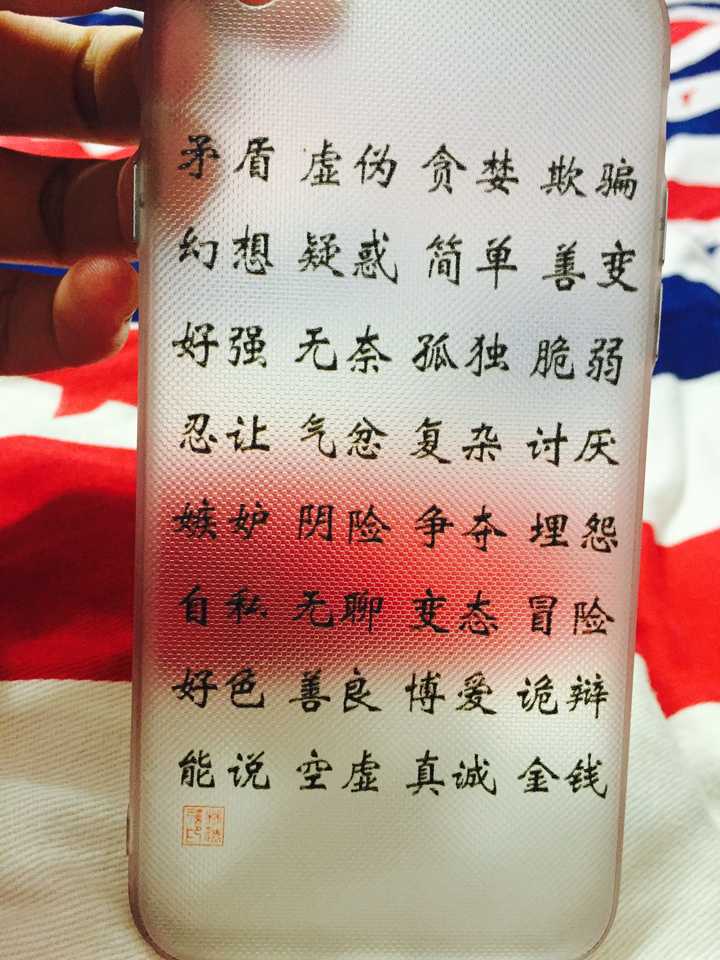 矛盾 虚伪 贪婪 欺骗
幻想 疑惑 简单 善变
好强 无奈 孤独 脆弱
忍让 气忿 复杂 讨厌
嫉妒 阴险 争夺 埋怨
自私 无聊 变态 冒险
好色 善良 博爱 诡辩
能说 空虚 真诚 金钱